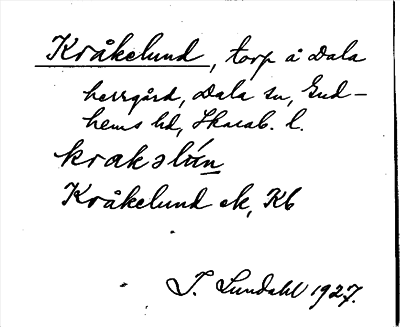 Kråkelund, torp å Dala
herrgård, Dala sn, Gud-
hems hd, Skarab. l.
krakəlún
Kråkelund ek, Kb
I. Lundahl 1927.